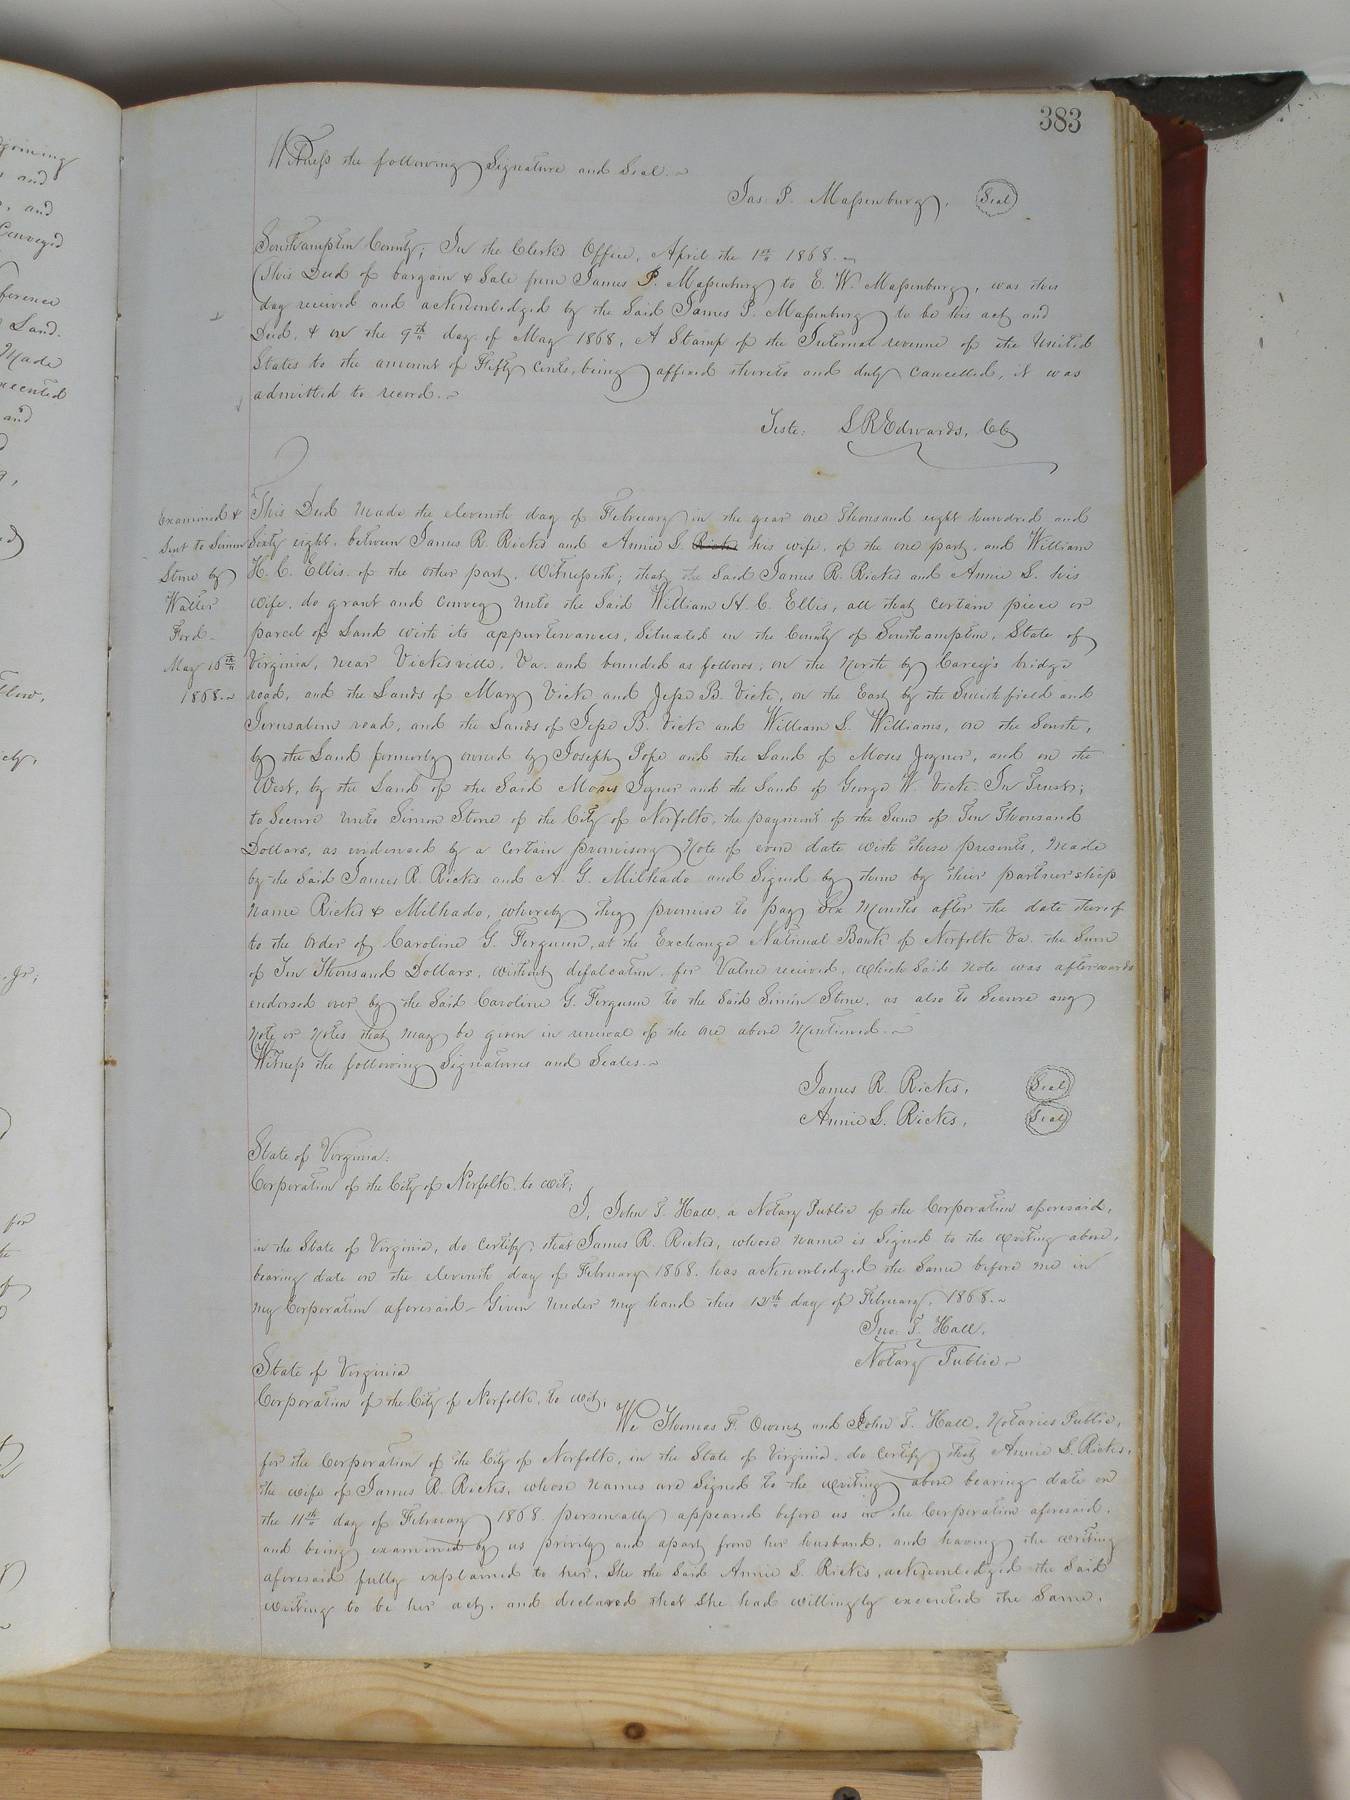 383
Witness the following Signature and Seal.
Jas. P. Massenburg, Seal
Southampton County; In the Clerk's Office, April the 1st 1868.
This Deed of bargain & Sale from James P. Massenburg to E. W. Massenburg, was this
day received and acknowledged by the Said James P. Massenburg to be his act and
Deed, & on the 9th day of May 1868, A Stamp of the Internal revenue of the United
States to the amount of Fifty Cents, being affixed thereto and duly Cancelled, it was
admitted to record.
Teste: L R Edwards, CC
Examined &
Sent to Simon
Stone by
Walter
Ford
May 15th
1868.
This Deed Made the eleventh day of February in the year one Thousand eight hundred and
Sixty eight, between James R. Ricks and Annie S. Ricks his wife, of the one part, and William
H. C. Ellis of the other part, Witnesseth; that the Said James R. Ricks and Annie S. his
wife, do grant and Convey Unto the Said William H. C. Ellis, all that Certain piece or
parcel of Land with its appurtenances, Situated in the County of Southampton, State of
Virginia, Near Vicksville, Va. and bounded as follows; on the North by Carey's bridge
road, and the Lands of Mary Vick and Jesse B. Vick, on the East by the Smithfield and
Jerusalem road, and the Lands of Jesse B. Vick and William S. Williams, on the South,
by the Land formerly owned by Joseph Pope and the Land of Moses Joyner, and on the
West, by the Land of the Said Moses Joyner and the Land of George W. Vick. In Trust;
to Secure Unto Simon Stone of the City of Norfolk, the payment of the Sum of Ten Thousand
Dollars, as evidenced by a Certain promisory Note of even date with these presents, Made
by the Said James R. Ricks and A. G. Milhado and Signed by them by their partnership
Name Ricks & Milhado, whereby they promise to pay Six Months after the date thereof
to the Order of Caroline G. Ferguson, at the Exchange National Bank of Norfolk Va. the Sum
of Ten Thousand Dollars, without defalcation, for Value received, which Said Note was afterwards
endorsed over by the Said Caroline G. Ferguson to the Said Simon Stone, as also to Secure any
Note or Notes that may be given in renewal of the one above Mentioned.
Witness the following Signatures and Seals.
James R. Ricks, Seal
Annie S. Ricks, Seal
State of Virginia:
Corporation of the City of Norfolk, to wit;
I, John T. Hall, a Notary Public of the Corporation aforesaid,
in the State of Virginia, do Certify, that James R. Ricks, whose name is Signed to the writing above,
bearing date on the eleventh day of February 1868, has acknowledged the Same before me in
My Corporation aforesaid. Given Under My hand this 12th day of February, 1868.
Jno. T. Hall,
Notary Public
State of Virginia
Corporation of the City of Norfolk, to wit;
We Thomas F. Owens and John T. Hall, Notaries Public,
for the Corporation of the City of Norfolk, in the State of Virginia, do Certify that Annie S. Ricks,
the wife of James R. Ricks, whose Names are Signed to the writing above bearing date on
the 11th day of February 1868, personally appeared before us in the Corporation aforesaid,
and being examined by us privily and apart from her husband, and having the writing
aforesaid fully explained to her, She the Said Annie S. Ricks, acknowledged the Said
writing to be her act, and declared that She had willingly executed the Same,